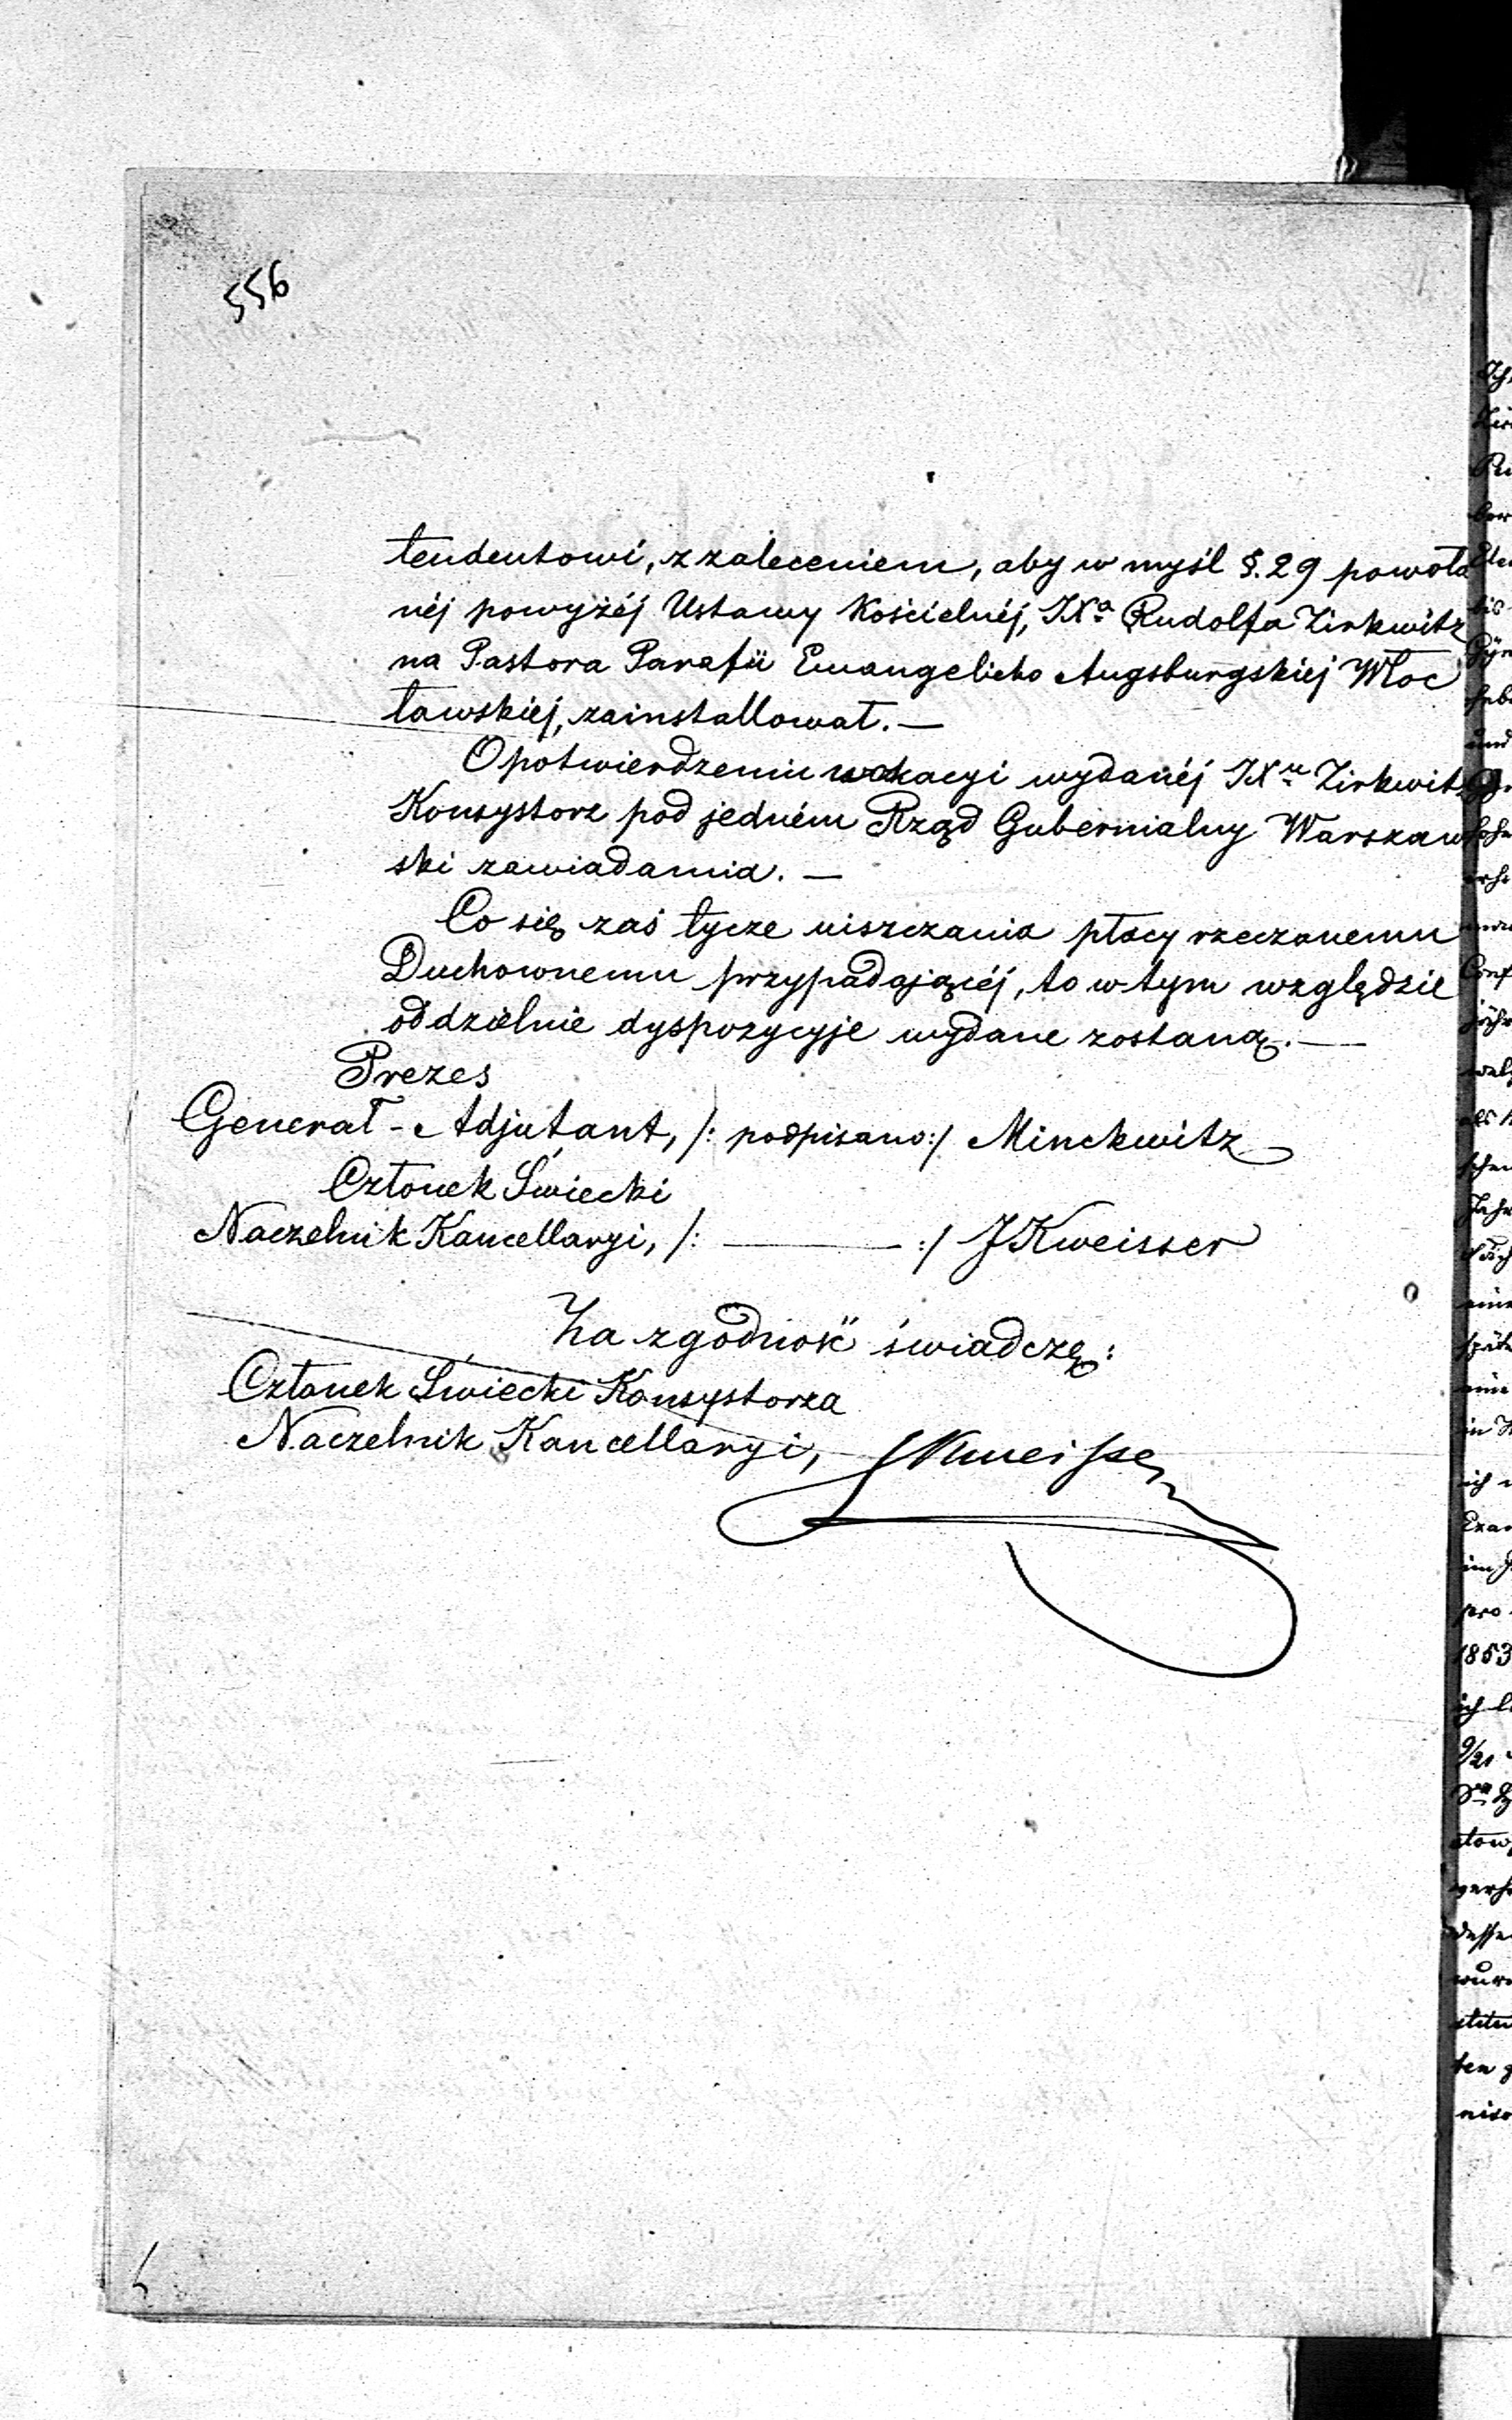 556
tendentowi, z zaleceniem, aby w myśl §. 29 powoła
néj powyżéj Ustawy Kościelnéj, JXa Rudolfa Zirkwitz
na Pastora Parafii Ewangelicko Augsburgskiej Włoc
ławskiej, zainstallował. —
O potwierdzeniu wokacyi wydanéj JXu Zirkwitz
Konsystorz pod jedném Rząd Gubernialny Warszaw
ski zawiadamia. —
Co się zaś tycze uiszczania płacy rzeczonemu
Duchownemu przypadającéj, to w tym względzie
oddzielnie dyspozycyje wydane zostaną. —
Prezes
Generał-Adjutant, /: podpisano :/ Minckwitz
Członek Świecki
Naczelnik Kancellaryi, /: ——— :/ J Kweisser
Za zgodność świadczę:
Członek Świecki Konsystorza
Naczelnik Kancellaryi,
1853
9/21